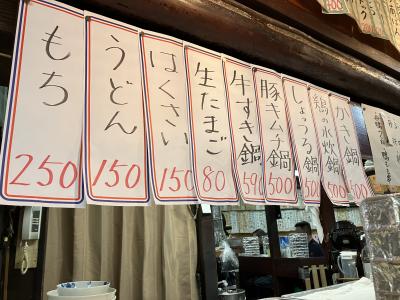 もち
250
うどん
150
はくさい
150
生たまご
80
牛すき鍋
590
豚キムチ鍋
500
しょっつる鍋
鶏の水炊鍋
500
かき鍋